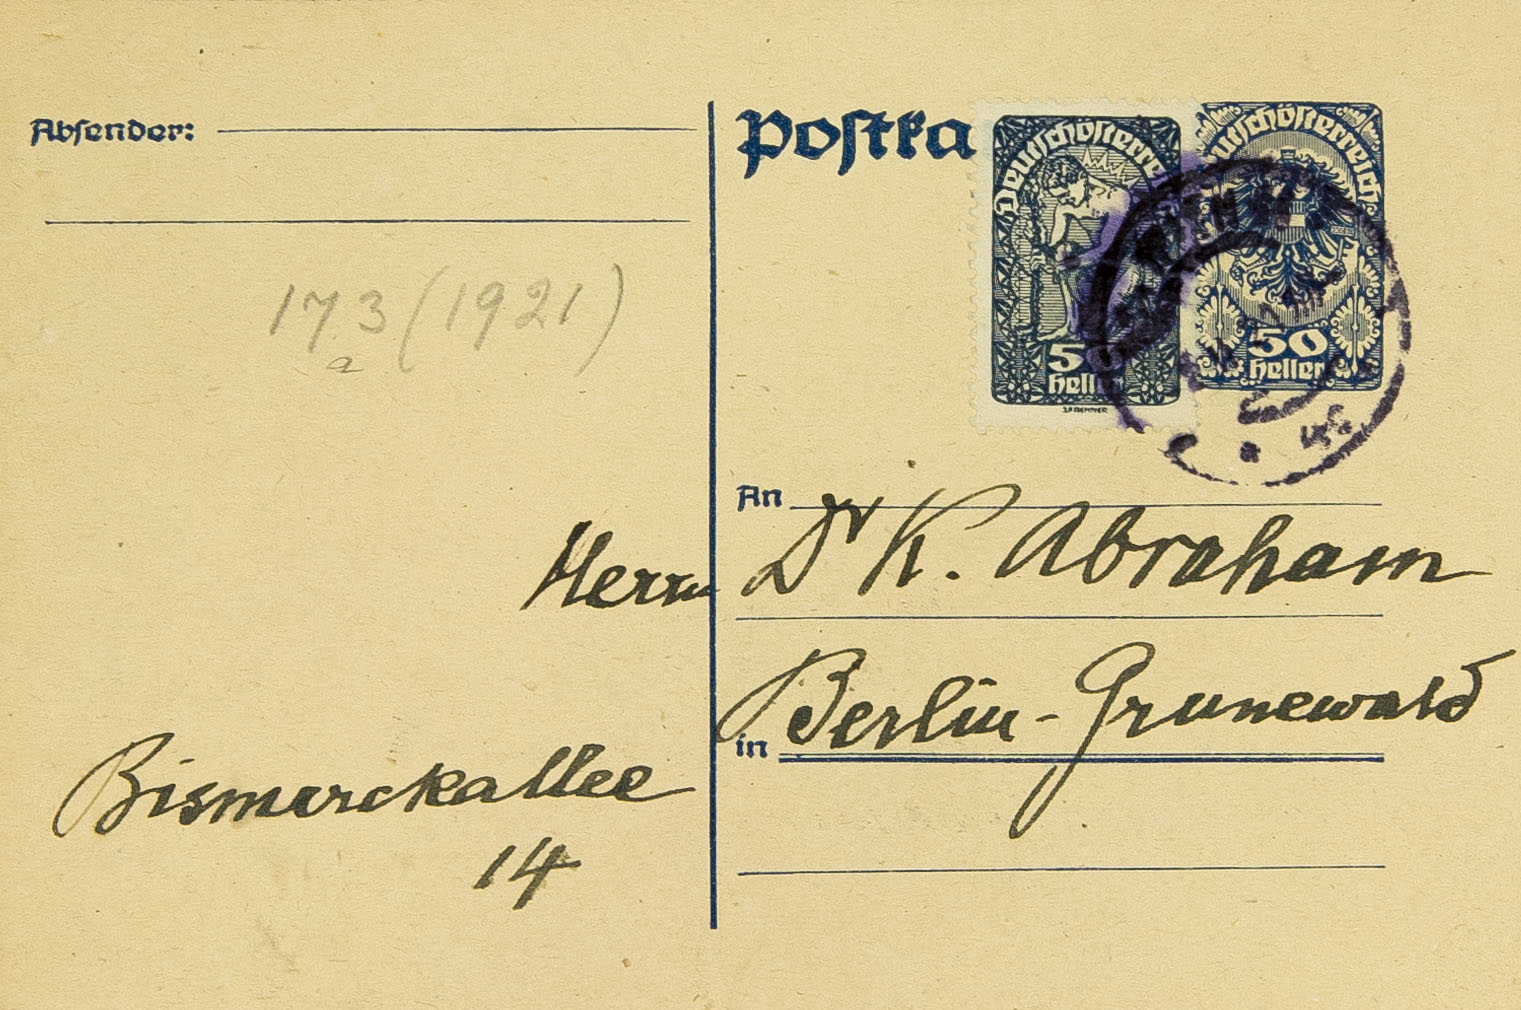 Absender:
Postka
Deutschösterre
50
Heller
Deutschösterreich
50
Heller
WIEN
173 (1921)
a
An
Herrn Dr K. Abraham
in Berlin-Grunewald
Bismarckallee
14